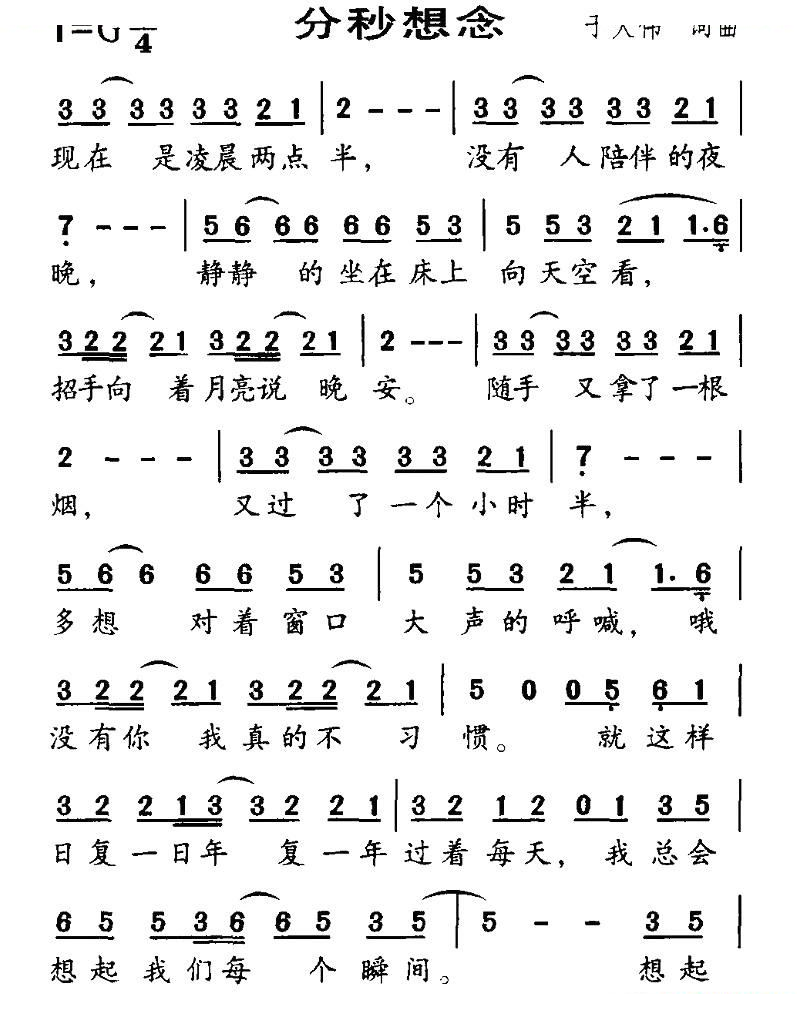 4
分秒想念 词曲
3 3 3 3 3 3 2 1 | 2 - - - | 3 3 3 3 3 3 2 1 |
现在 是凌晨两点半， 没有 人陪伴的夜
7 - - - | 5 6 6 6 6 6 5 3 | 5 5 3 2 1 1·6 |
晚， 静静 的坐在床上 向天空看，
3 2 2 2 1 3 2 2 2 1 | 2 - - - | 3 3 3 3 3 3 2 1 |
招手向 着月亮说 晚 安。 随手 又拿了一根
2 - - - | 3 3 3 3 3 3 2 1 | 7 - - - |
烟， 又过 了一个小时 半，
5 6 6 6 6 5 3 | 5 5 3 2 1 1· 6 |
多想 对着窗口 大声的呼喊， 哦
3 2 2 2 1 3 2 2 2 1 | 5 0 0 5 6 1 |
没有你 我真的不 习 惯。 就这样
3 2 2 1 3 3 2 2 1 | 3 2 1 2 0 1 3 5 |
日复一日年 复一年过着每天， 我总会
6 5 5 3 6 6 5 3 5 | 5 - - 3 5 |
想起我们每 个瞬间。 想起